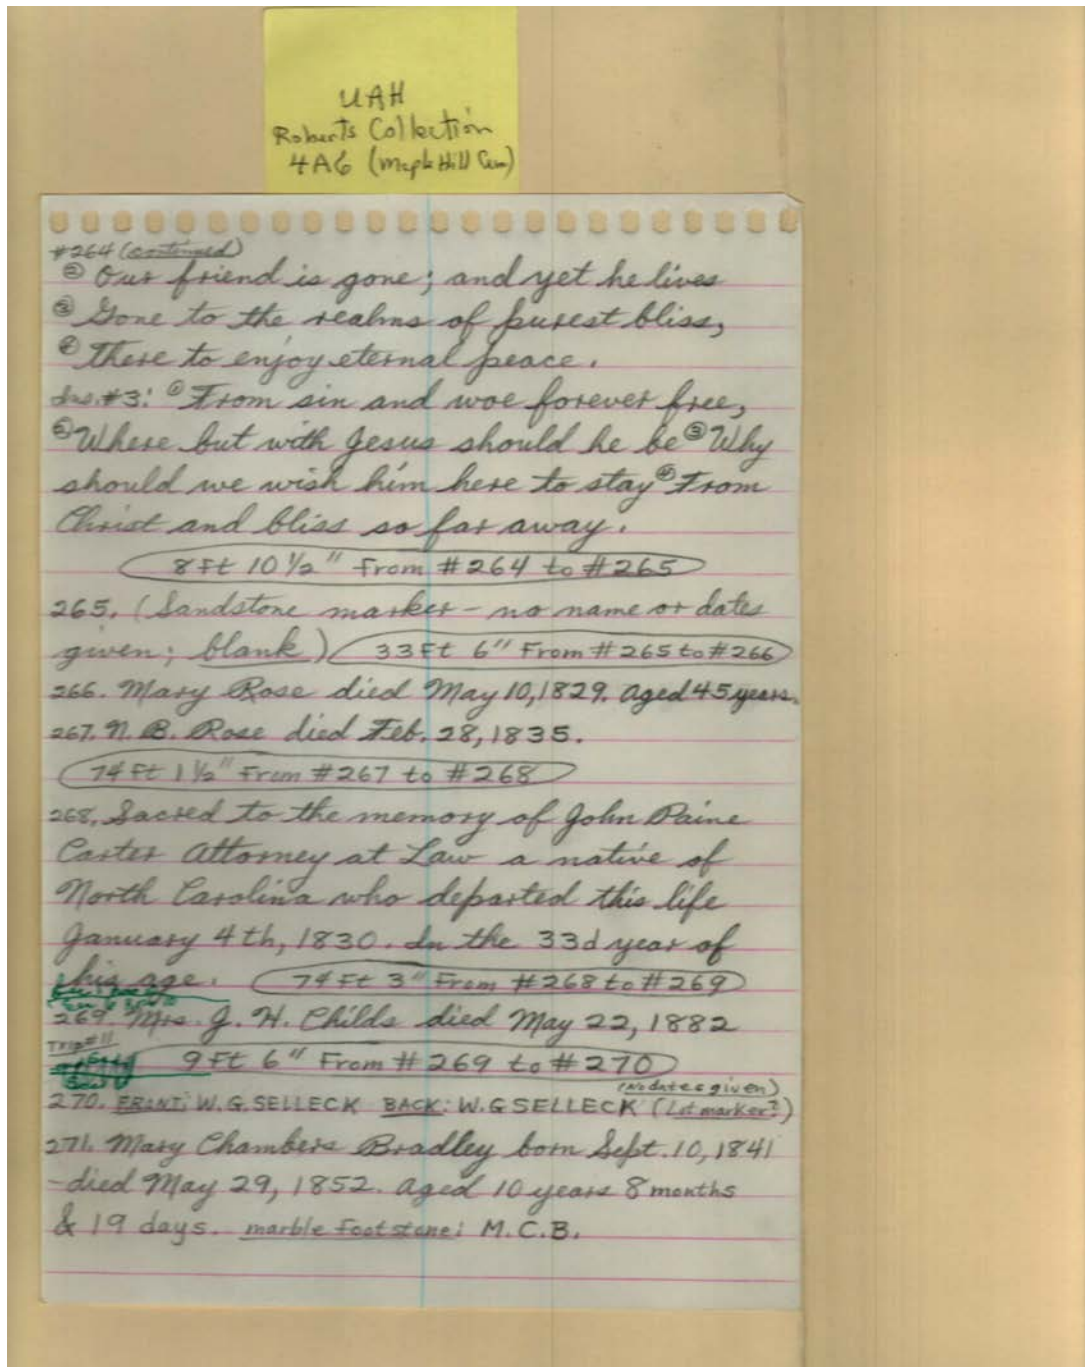 UAH
Roberts Collection
4A6 (Maple Hill Cem)
#264 (continued)
② Our friend is gone; and yet he lives
③ Gone to the realms of purest bliss,
④ There to enjoy eternal peace.
Ins. #3: ① From sin and woe forever free,
② Where but with Jesus should he be ③ Why
should we wish him here to stay ④ From
Christ and bliss so far away.
8 Ft 10 1/2" From #264 to #265
265. (Sandstone marker - no name or dates
given; blank) 33 Ft 6" From #265 to #266
266. Mary Rose died May 10, 1829. Aged 45 years.
267. N. B. Rose died Feb. 28, 1835.
74 Ft 1 1/2" From #267 to #268
268. Sacred to the memory of John Paine
Carter Attorney at Law a native of
North Carolina who departed this life
January 4th, 1830. In the 33d year of
his age. 74 Ft 3" From #268 to #269
269. Mrs. J. H. Childs died May 22, 1882
Trip #11
9 Ft 6" From #269 to #270
(No dates given)
270. FRONT: W. G. SELLECK BACK: W. G SELLECK (Lot marker?)
271. Mary Chambers Bradley born Sept. 10, 1841
- died May 29, 1852. Aged 10 years 8 months
& 19 days. marble footstone: M.C.B.